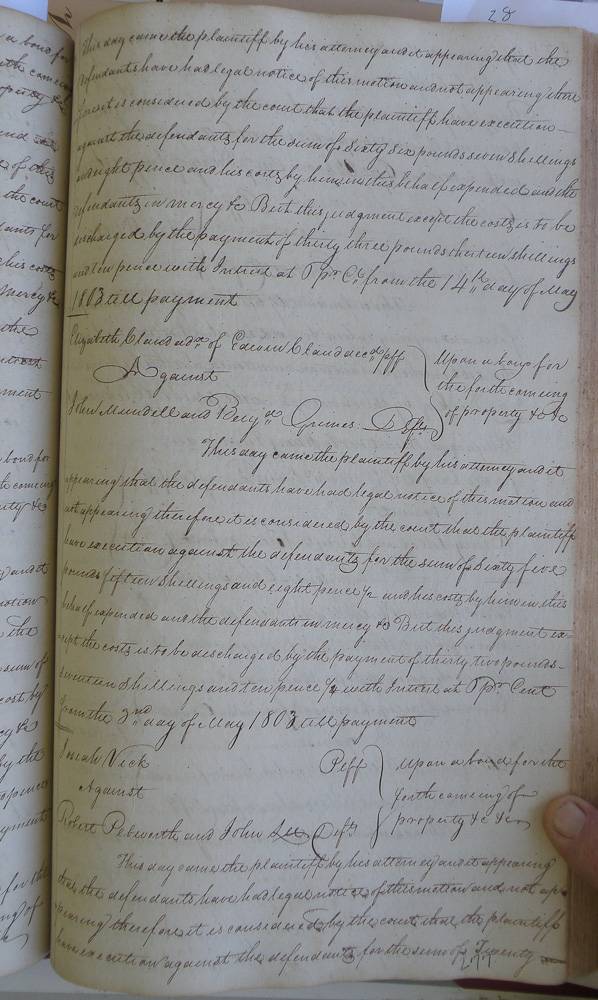 28
This day came the plaintiff by his attorney and it appearing that the
defendants have had legal notice of this motion and not appearing there
fore it is considered by the court that the plaintiff have execution
against the defendants for the sum of Sixty Six pounds seven Shillings
and eight pence and his costs by him in this behalf expended and the
defendants in mercy &c But this judgment except the costs is to be
discharged by the payment of thirty three pounds thirteen shillings
and ten pence with Interest at 5 pr. Ct. from the 14th day of May
1803 till payment
Elizabeth Claud adx. of Edwin Claud decd. plff Upon a bond for
Against the forth coming
John Mundell and Benja. Grimes Defts of property &c &c
This day came the plaintiff by his attorney and it
appearing that the defendants have had legal notice of this motion and
not appearing therefore it is considered by the court that the plaintiff
have execution against the defendants for the sum of Sixty five
pounds fifteen Shillings and eight pence 1/2 and his costs by him in this
behalf expended and the defendants in mercy &c But this judgment ex-
cept the costs is to be discharged by the payment of thirty two pounds
seventeen Shillings and ten pence 1/2 with Interest at 5 pr. Cent
from the 3nd day of May 1803 till payment
Josiah Vick Plff Upon a bond for the
Against forth coming of
Robert Pebworth and John Lee Defts property &c &c
This day came the plaintiff by his attorney and it appearing
that the defendants have had legal notice of this motion and not ap-
pearing therefore it is considered by the court that the plaintiff
have execution against the defendants for the sum of Twenty